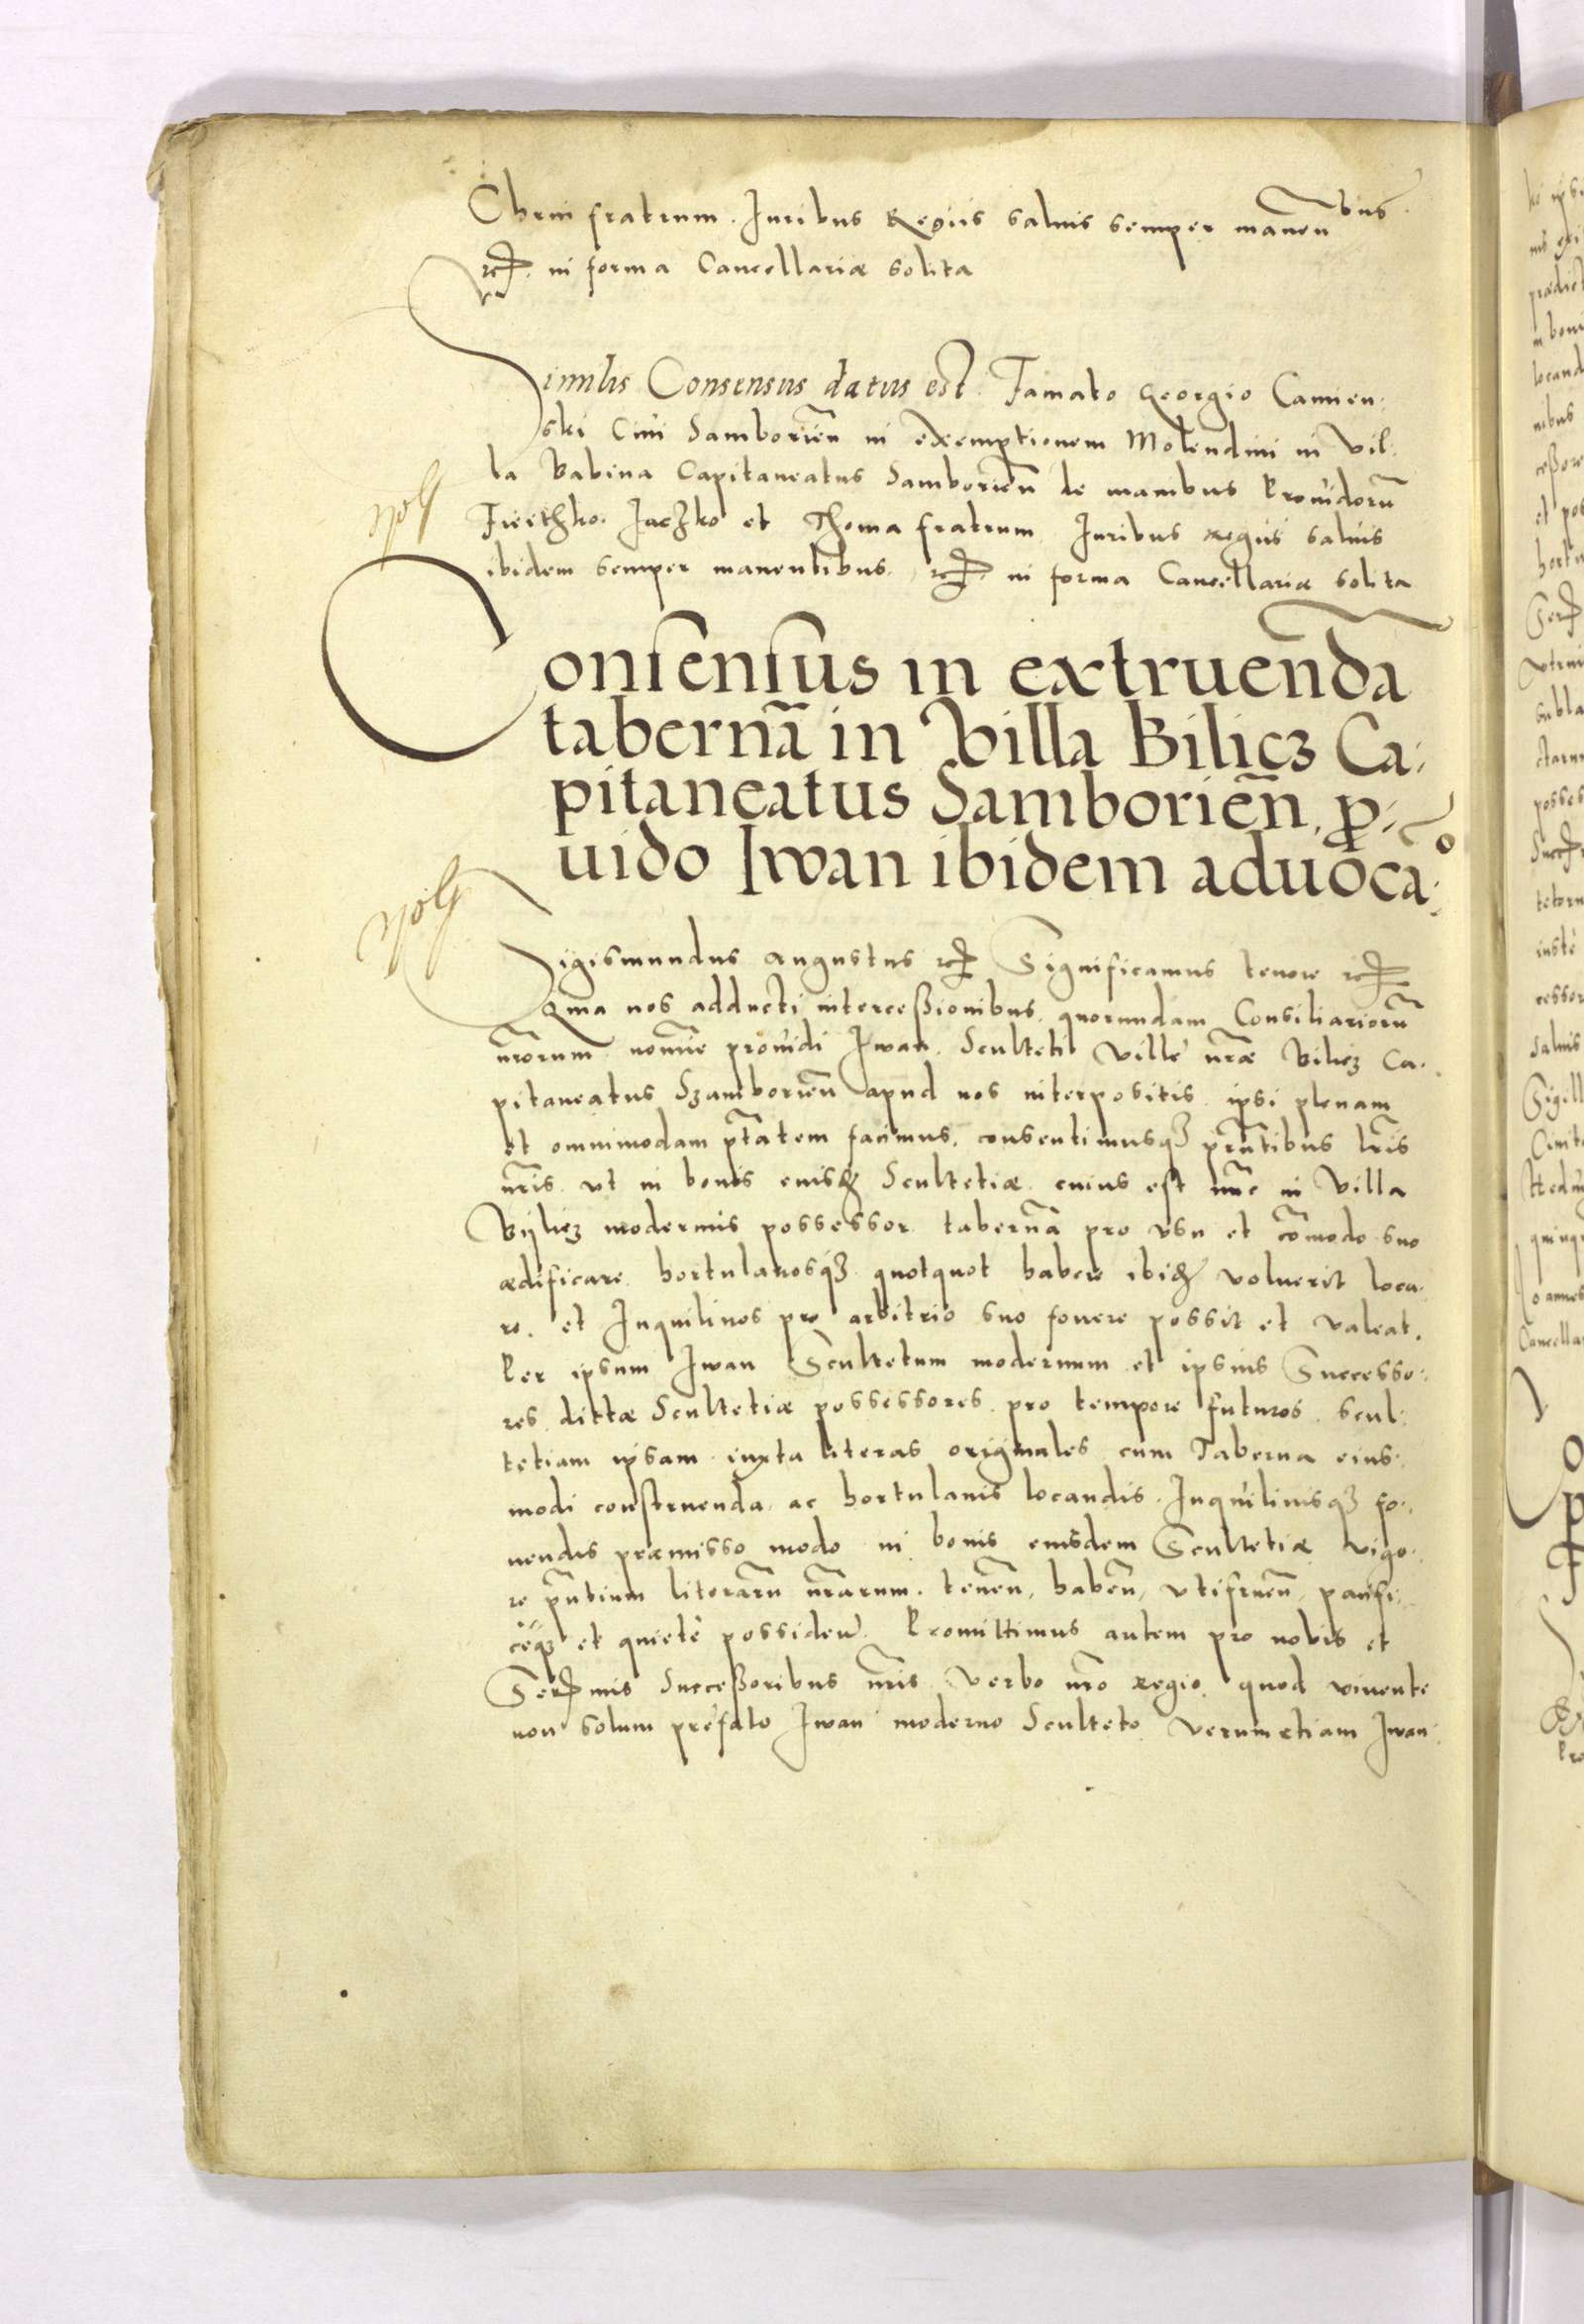 Chrin fratrum. Iuribus Regiis saluis semper manen˜bus.
etc. in forma Cancellariæ solita
Similis Consensus datus est. Famato Georgio Camien:
ski Ciui Samborien̄ in exemptionem Molendini in Vil:
la Babina Capitaneatus Samborien̄ de manibus Prouidorū
Fieithko. Iaczko et Thoma fratrum Iuribus regiis saluis
ibidem semper manentibus. etc. in forma Cancellariæ solita
Consensus in extruenda
tabernā in Villa Bilicz Ca:
pitaneatus Samborien̄, ꝓ:
uido Iwan ibidem aduoca:º
Sigismundus Augustus etc. Significamus tenore etc.
Qma nos adducti intercessionibus quorundam Consiliariorū
nr̄orum nomine prouidi Iwan. Sculteti Villę nr̄æ Bilicz Ca.
pitaneatus Szamborien̄ apud nos interpositis ipsi plenam
et omnimodam ptātem facimus, consentimusq3 prn̄tibus lr̄is
nr̄is vt in bonis eiusd Scultetiæ cuius est nūc in Villa
Byliez modernus possessor tabernā pro vsu et cōmodo suo
ædificare hortulanosq3 quotquot habere ibid voluerit loca.
re. et Inquilinos pro arbitrio suo fouere possit et valeat.
Per ipsum Iwan Scultetum modernum et ipsius Successo:
res dittæ Scultetiæ possessores pro tempore futuros scul:
tetiam ipsam iuxta literas originales cum Taberna eius:
modi construenda ac hortulanis locandis. Inquilinisq3 fo:
uendis præmisso modo in bonis eiusdem Scultetiæ vigo:
re pn̄tium literarū nr̄arum. tenen̄, haben̄, vtifruen̄, pacifi:
ceq3 et quietè possiden̄. Promittimus autem pro nobis et
Sermis Successoribus nr̄is Verbo nr̄o regio quod viuente
non solum prefato Iwan moderno Sculteto verumetiam Iwan: